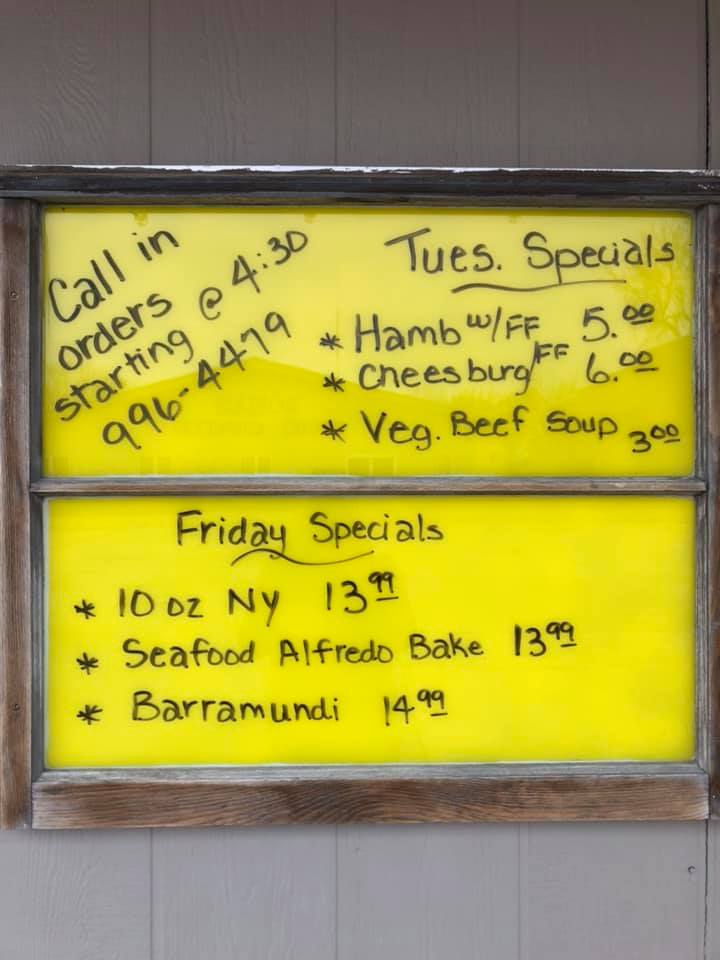 Call in
orders
starting @ 4:30
996-4479
Tues. Specials
* Hamb w/FF 5.00
* Cheesburg/FF 6.00
* Veg. Beef Soup 3 00
Friday Specials
* 10 oz NY 13 99
* Seafood Alfredo Bake 13 99
* Barramundi 14 99